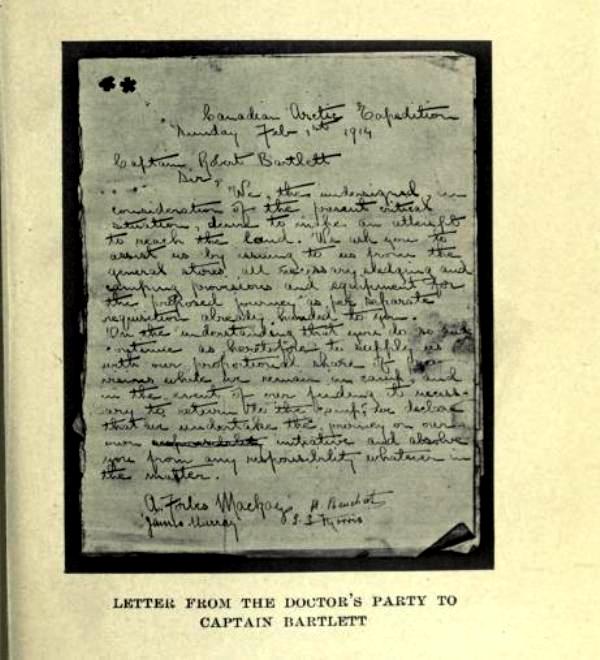 Canadian Arctic Expedition
Sunday Feb 1st 1914
Captain Robert Bartlett
Sir,
We, the undersigned, in
consideration of the present critical
situation, desire to make an attempt
to reach the land. We ask you to
assist us by issuing to us from the
general stores all necessary sledging and
camping provisions and equipment for
the proposed journey as per separate
requisition already handed to you.
On the understanding that you do so and
continue as heretofore to supply us
with our proportional share of
while we remain in camp, and
in the event of our finding it necess-
ary to return to the camp, we declare
that we undertake the journey on our
own responsibility initiative and absolve
you from any responsibility whatever in
the matter.
A. Forbes Mackay H. Beuchat
James Murray S. S. Morris
LETTER FROM THE DOCTOR'S PARTY TO
CAPTAIN BARTLETT